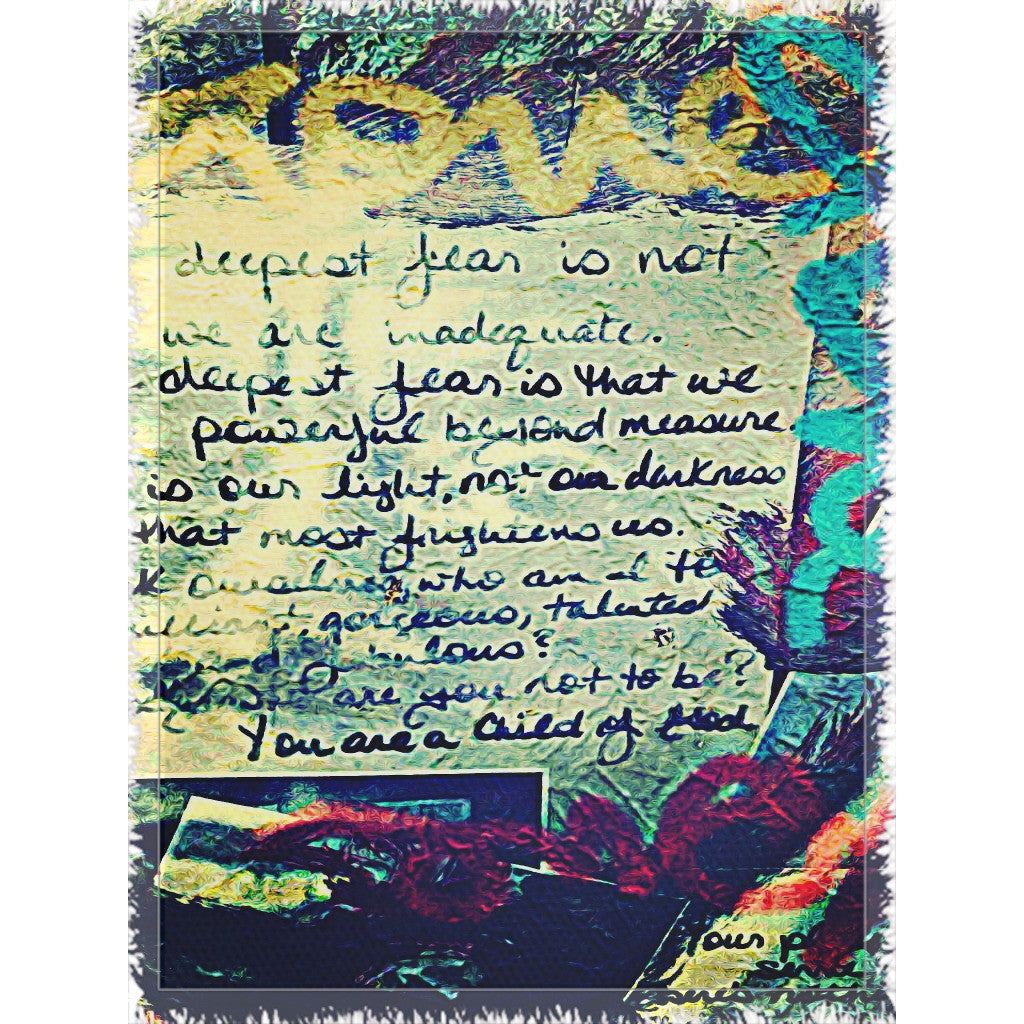 deepest fear is not
we are inadequate.
deepest fear is that we
powerful beyond measure.
is our light, not our darkness
that most frightens us.
ourselves, who am I to
gorgeous, talented
fabulous?
are you not to be?
You are a Child of God
Your